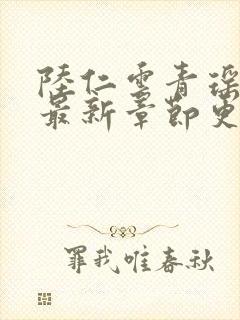 陸仁雲青瑶
最新章節更
罪我唯春秋